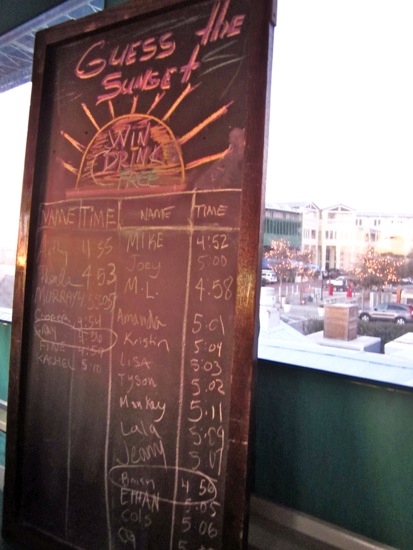 Guess the
Sunset
WIN
DRINK
FREE
NAME TIME NAME TIME
4:55 MIKE 4:52
Rhonda 4:53 Joey 5:00
MURRAY M.L. 4:58
4:54 Amanda 5:01
4:56 Kristin 5:04
4:57 LISA 5:03
RACHEL 5:10 Tyson 5:02
Monkay 5:11
Lala 5:09
Jenny
4:56
ETHAN 5:05
Cols 5:06